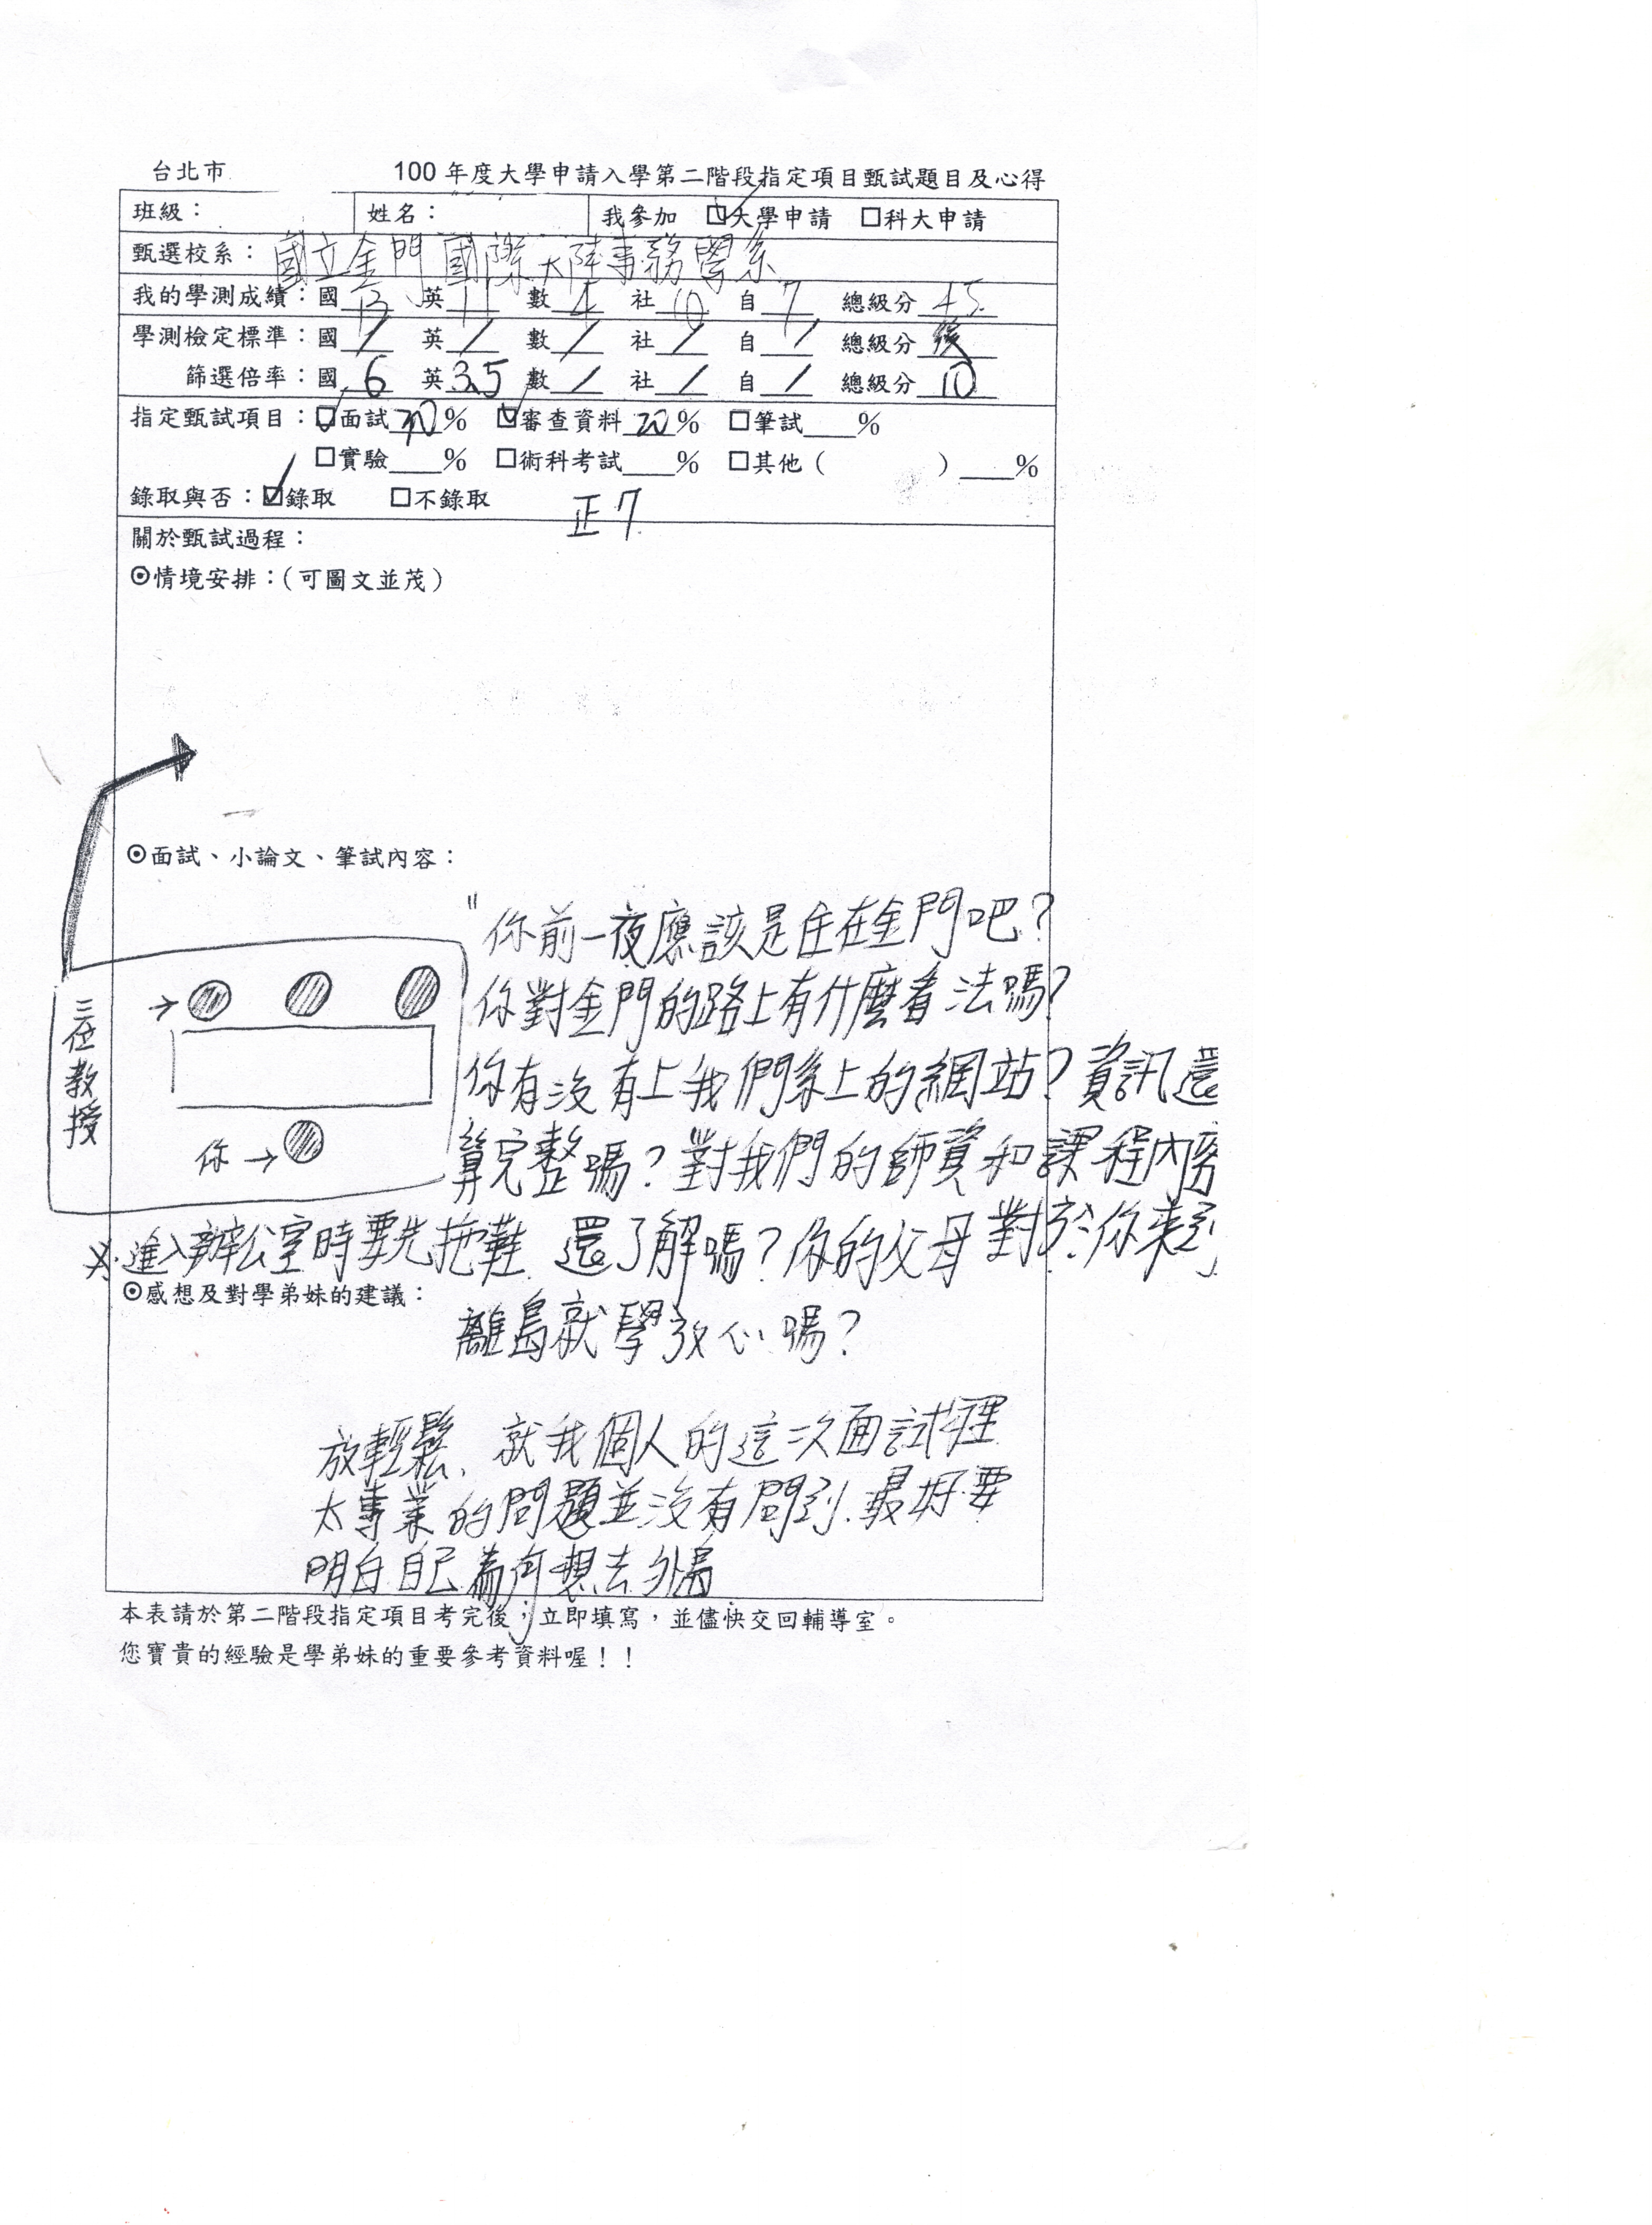 台北市 100 年度大學申請入學第二階段指定項目甄試題目及心得
班級： 姓名： 我參加 ☑大學申請 □科大申請
甄選校系：國立金門國際大陸事務學系
我的學測成績：國 13 英 11 數 4 社 10 自 7 總級分 45
學測檢定標準：國 / 英 / 數 / 社 / 自 / 總級分 後
篩選倍率：國 6 英 3.5 數 / 社 / 自 / 總級分 10
指定甄試項目：☑面試 % ☑審查資料 20 % □筆試 %
□實驗 % □術科考試 % □其他（ ） %
錄取與否：☑錄取 □不錄取 正7
關於甄試過程：
⊙情境安排：(可圖文並茂)
⊙面試、小論文、筆試內容：
"你前一夜應該是住在金門吧?
你對金門的路上有什麼看法嗎?
你有沒有上我們系上的網站?資訊還
算完整嗎?對我們的師資和課程內容
還了解嗎?你的父母對於你來到
離島就學放心嗎?
三位教授
→
你→
※進入辦公室時要先拖鞋
⊙感想及對學弟妹的建議：
放輕鬆、就我個人的這次面試裡
太專業的問題並沒有問到.最好要
明白自己為何想去外島
本表請於第二階段指定項目考完後，立即填寫，並儘快交回輔導室。
您寶貴的經驗是學弟妹的重要參考資料喔！！